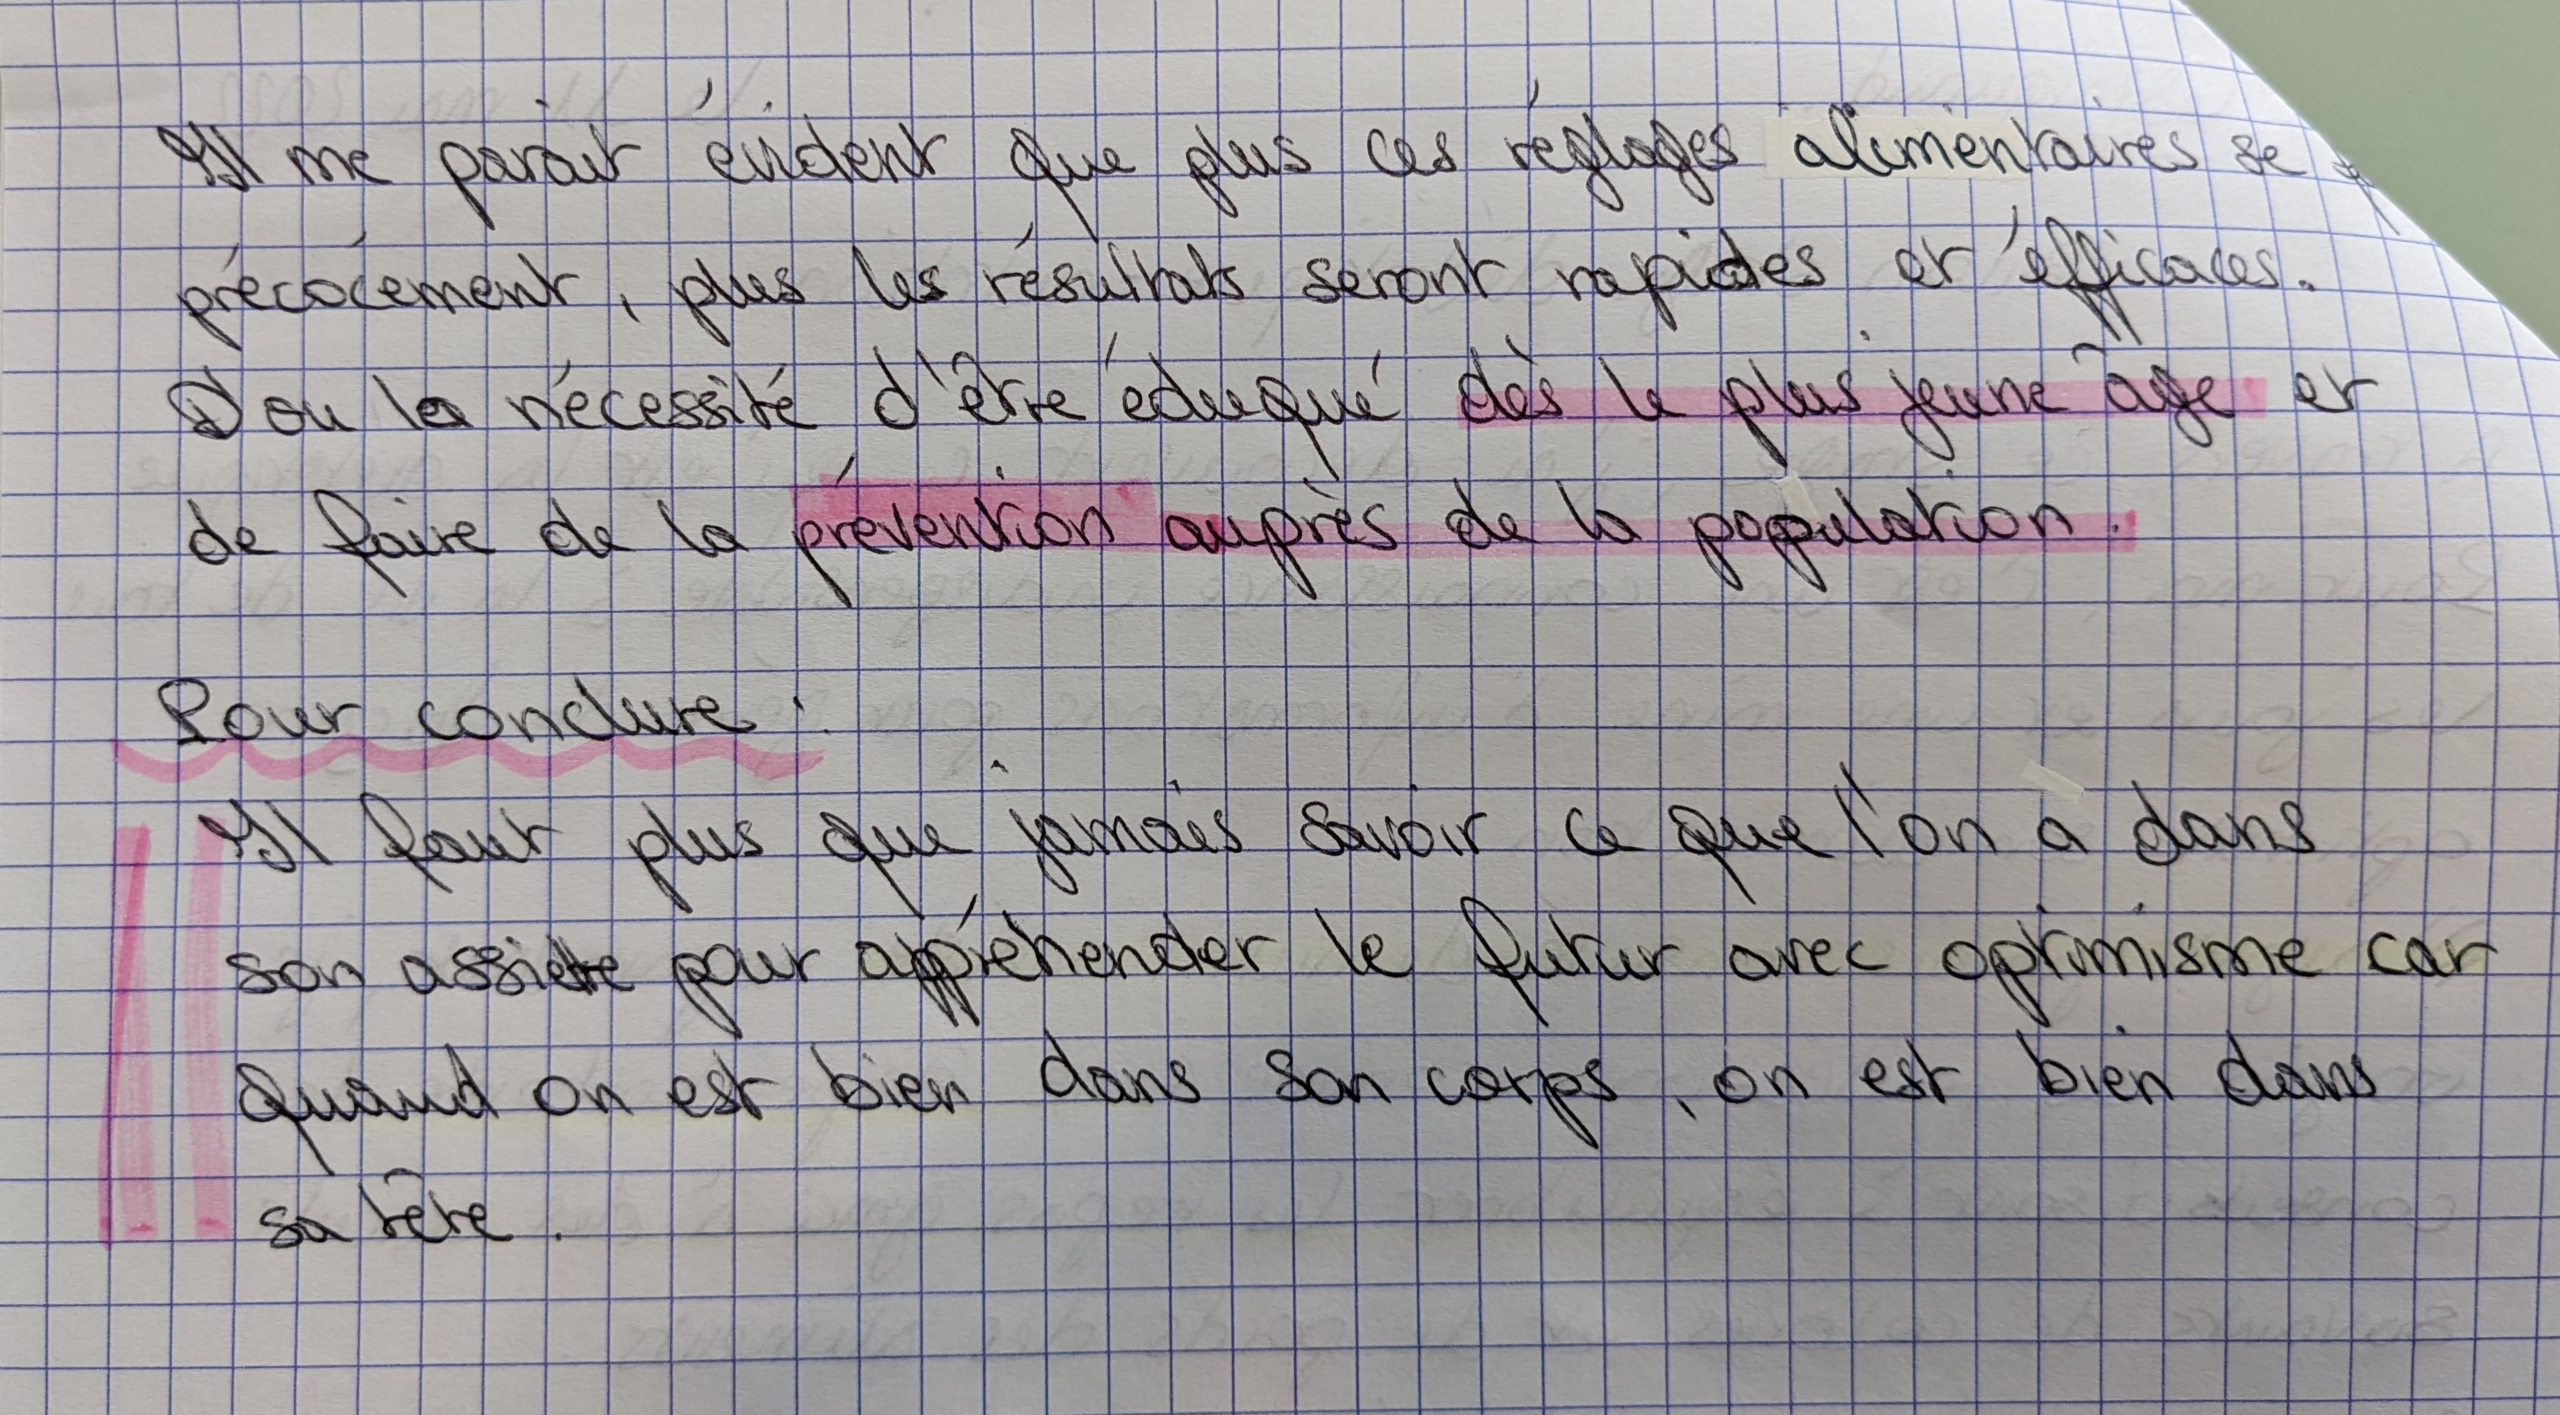 Il me parait évident que plus ces réglages alimentaires se
précocement, plus les résultats seront rapides et éfficaces.
D'ou la nécessité d'être éduqué dès le plus jeune âge et
de faire de la prévention auprès de la population.
Pour conclure :
Il faut plus que jamais savoir ce que l'on a dans
son assiette pour appréhender le futur avec optimisme car
quand on est bien dans son corps, on est bien dans
sa tête.